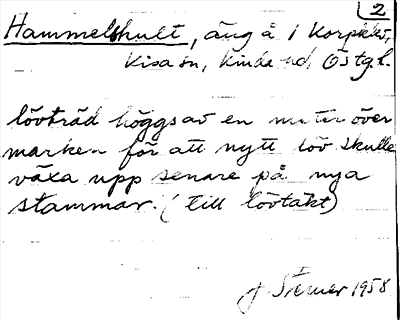 2
Hammelshult, äng å 1 Korpklev,
Kisa sn, Kinda hd, Östg.l.
lövträd höggs av en meter över
marken för att nytt löv skulle
växa upp senare på nya
stammar. (till lövtäkt)
1958